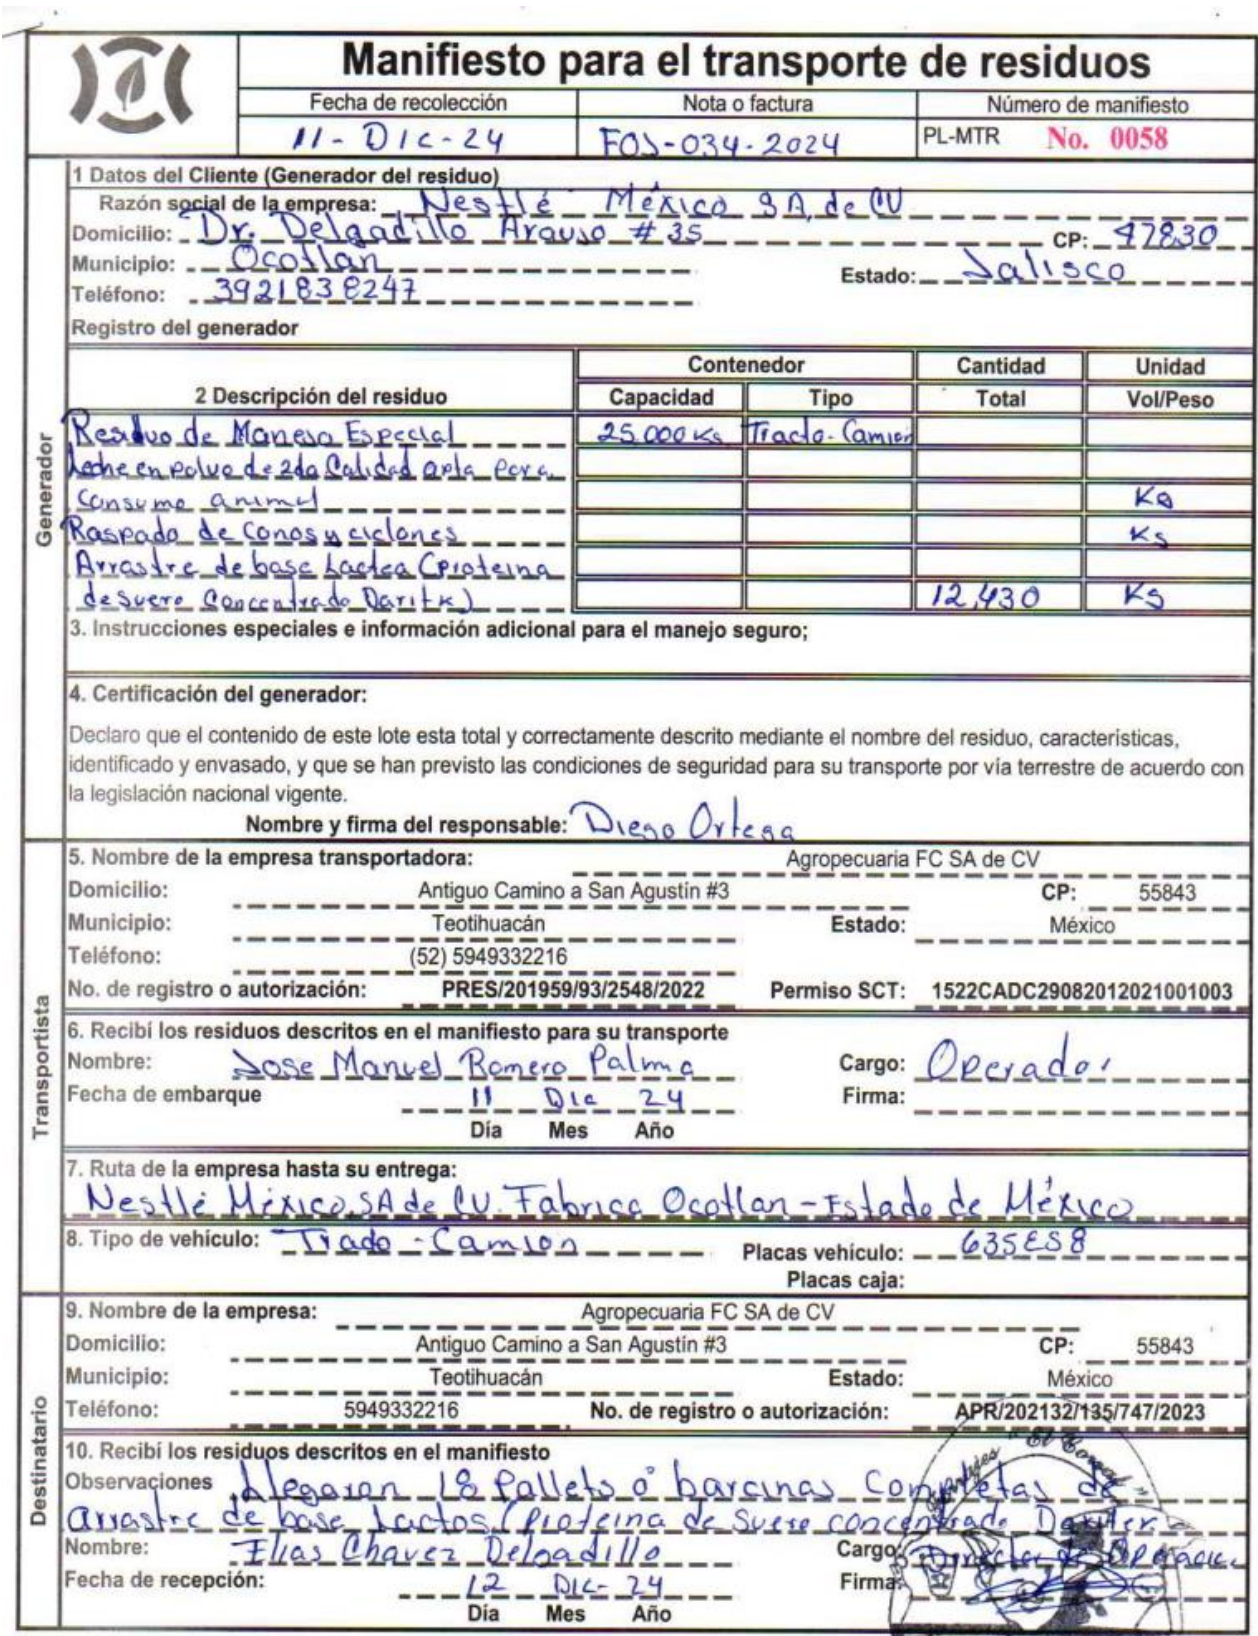 Manifiesto para el transporte de residuos
Fecha de recolección Nota o factura Número de manifiesto
11-DIC-24 FOS-034-2024 PL-MTR No. 0058
1 Datos del Cliente (Generador del residuo)
Razón social de la empresa: Nestlé México SA de CV
Domicilio: Dr. Delgadillo Araujo #35 CP: 47830
Municipio: Ocotlan Estado: Jalisco
Teléfono: 3921838247
Registro del generador
Generador
Contenedor Cantidad Unidad
2 Descripción del residuo Capacidad Tipo Total Vol/Peso
Residuo de Manejo Especial 25,000 Kg Tracto-Camion
Leche en polvo de 2da Calidad apta para
Consumo animal Kg
Raspado de Conos y ciclones Kg
Arrastre de base Lactea (proteina
de suero Concentrado Daritk) 12,430 Kg
3. Instrucciones especiales e información adicional para el manejo seguro;
4. Certificación del generador:
Declaro que el contenido de este lote esta total y correctamente descrito mediante el nombre del residuo, caracteristicas,
identificado y envasado, y que se han previsto las condiciones de seguridad para su transporte por vía terrestre de acuerdo con
la legislación nacional vigente.
Nombre y firma del responsable: Diego Ortega
Transportista
5. Nombre de la empresa transportadora: Agropecuaria FC SA de CV
Domicilio: Antiguo Camino a San Agustin #3 CP: 55843
Municipio: Teotihuacán Estado: México
Teléfono: (52) 5949332216
No. de registro o autorización: PRES/201959/93/2548/2022 Permiso SCT: 1522CADC29082012021001003
6. Recibí los residuos descritos en el manifiesto para su transporte
Nombre: Jose Manuel Romero Palma Cargo: Operador
Fecha de embarque 11 Dic 24 Firma:
Día Mes Año
7. Ruta de la empresa hasta su entrega:
Nestlé México SA de CV. Fabrica Ocotlan - Estado de México
8. Tipo de vehículo: Tracto-Camion Placas vehículo: 635ES8
Placas caja:
Destinatario
9. Nombre de la empresa: Agropecuaria FC SA de CV
Domicilio: Antiguo Camino a San Agustín #3 CP: 55843
Municipio: Teotihuacán Estado: México
Teléfono: 5949332216 No. de registro o autorización: APR/202132/135/747/2023
10. Recibí los residuos descritos en el manifiesto
Observaciones Llegaron 18 Pallets o barcinas Completas de
arrastre de base Lactos (Proteina de Suero concentrado
Nombre: Elias Chavez Delgadillo Cargo: Director de
Fecha de recepción: 12 DIC- 24 Firma:
Día Mes Año
"El Corral"